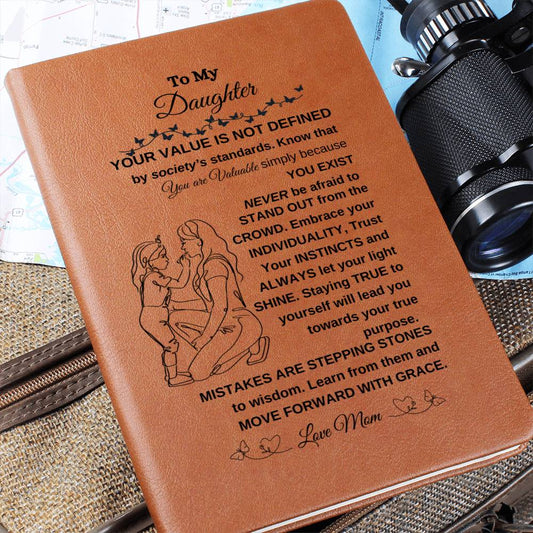 To My
Daughter
YOUR VALUE IS NOT DEFINED
by society's standards. Know that
You are Valuable simply because
YOU EXIST
NEVER be afraid to
STAND OUT from the
CROWD. Embrace your
INDIVIDUALITY, Trust
Your INSTINCTS and
ALWAYS let your light
SHINE. Staying TRUE to
yourself will lead you
towards your true
purpose.
MISTAKES ARE STEPPING STONES
to wisdom. Learn from them and
MOVE FORWARD WITH GRACE.
Love Mom